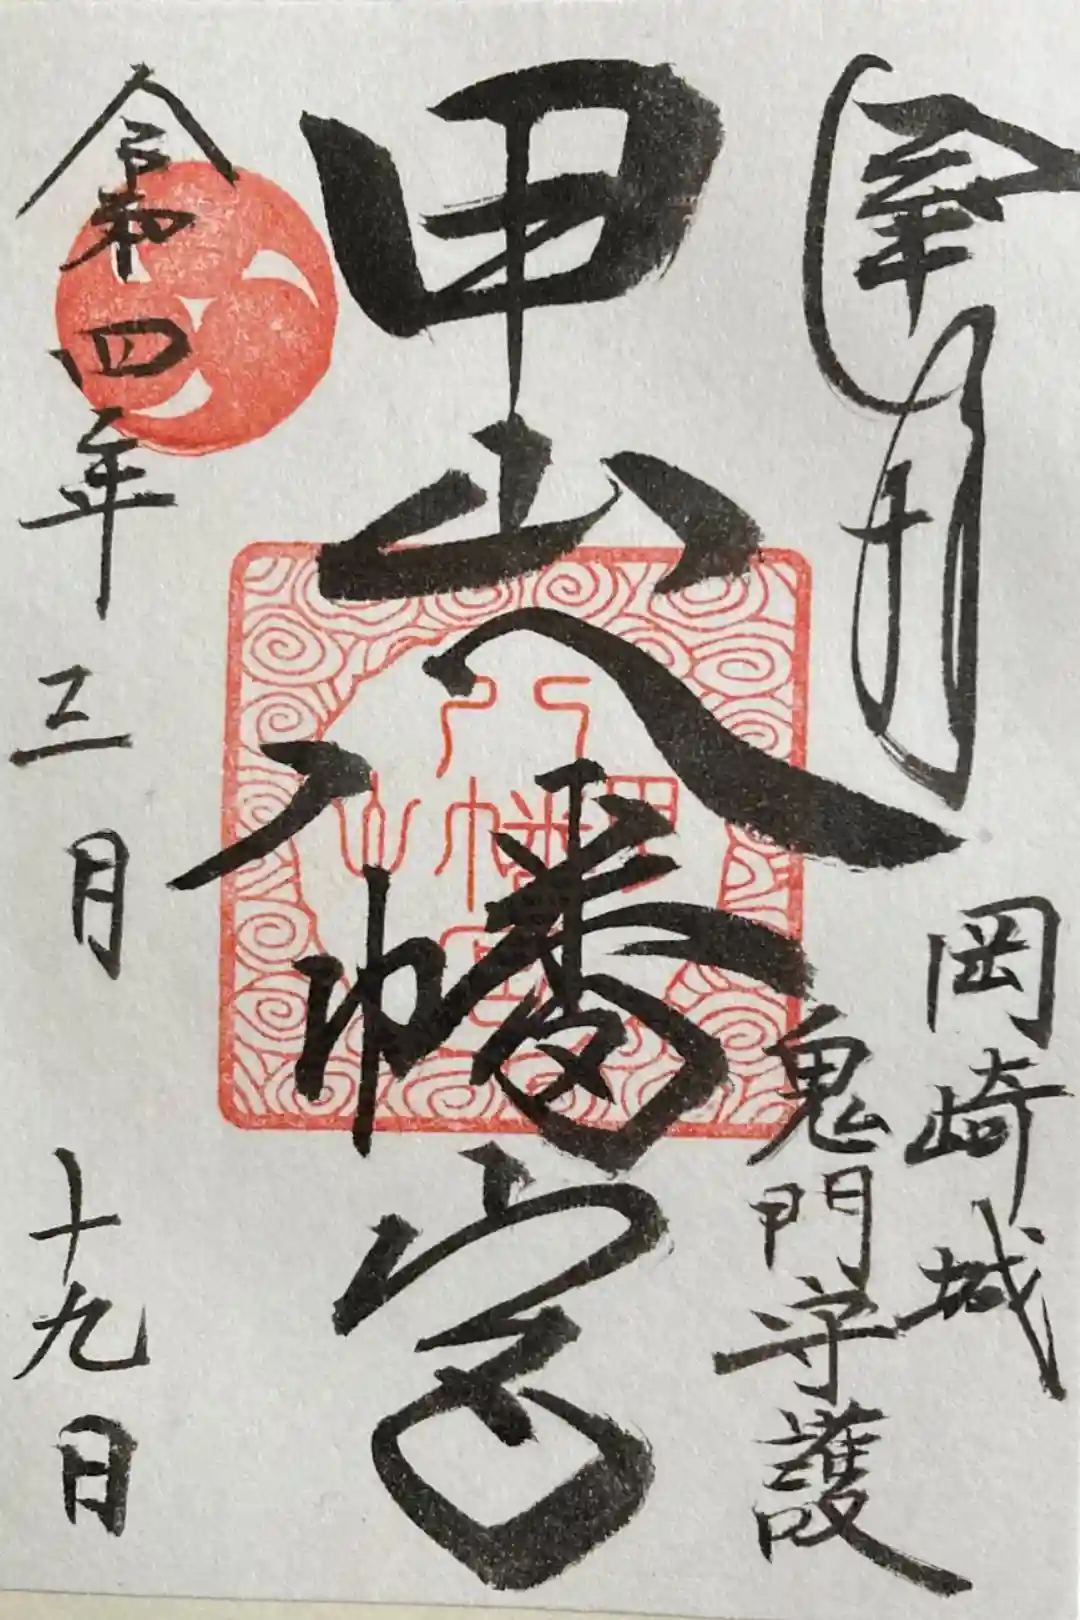 奉拝
岡崎城
鬼門守護
甲山八幡宮
令和四年三月十九日
八幡宮
甲山